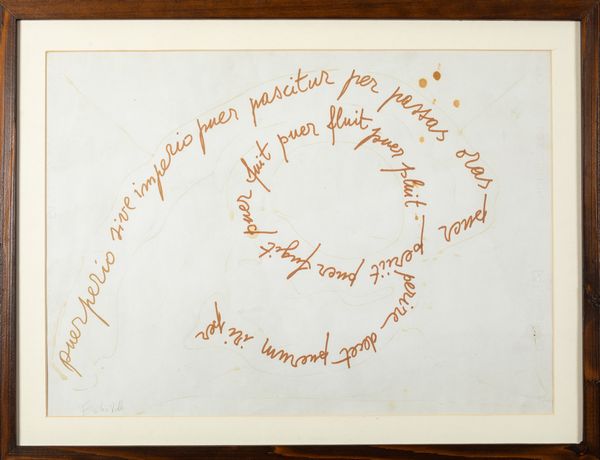 puerperio sive imperio puer pascitur per passas oras puer periit puer fugit puer fuit puer fluit puer pluit - perire docet puerum iri per